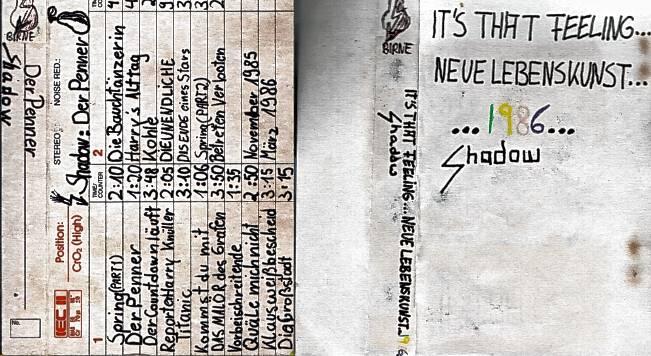 BIRNE
Der Penner
Shadow
STEREO:
NOISE RED.:
Shadow: Der Penner
Position:
CrO2 (High)
IEC II
No.
1
TIME/COUNTER
2
Spring (PART1) 2:10 Die Bauchtänzerin
Der Penner 1:20 Harry's Alltag
Der Countdown läuft 3:48 Kohle
Reporter Harry Knüller 2:05 DIE UNENDLICHE
Titanic 3:40 DAS ENDE eines Stars
Kommst du mit 1:06 Spring (PART2)
DAS MALÖR des Grafen 3:50 Betreten Verboten
Vorbeischreitende 1:35
Quäle mich nicht 2:50 November 1985
Klaus weiß bescheid 3:15 März 1986
Die Großstadt 3:15
BIRNE
IT'S THAT FEELING... NEUE LEBENSKUNST... 19
Shadow
IT'S THAT FEELING...
NEUE LEBENSKUNST...
...1986...
Shadow